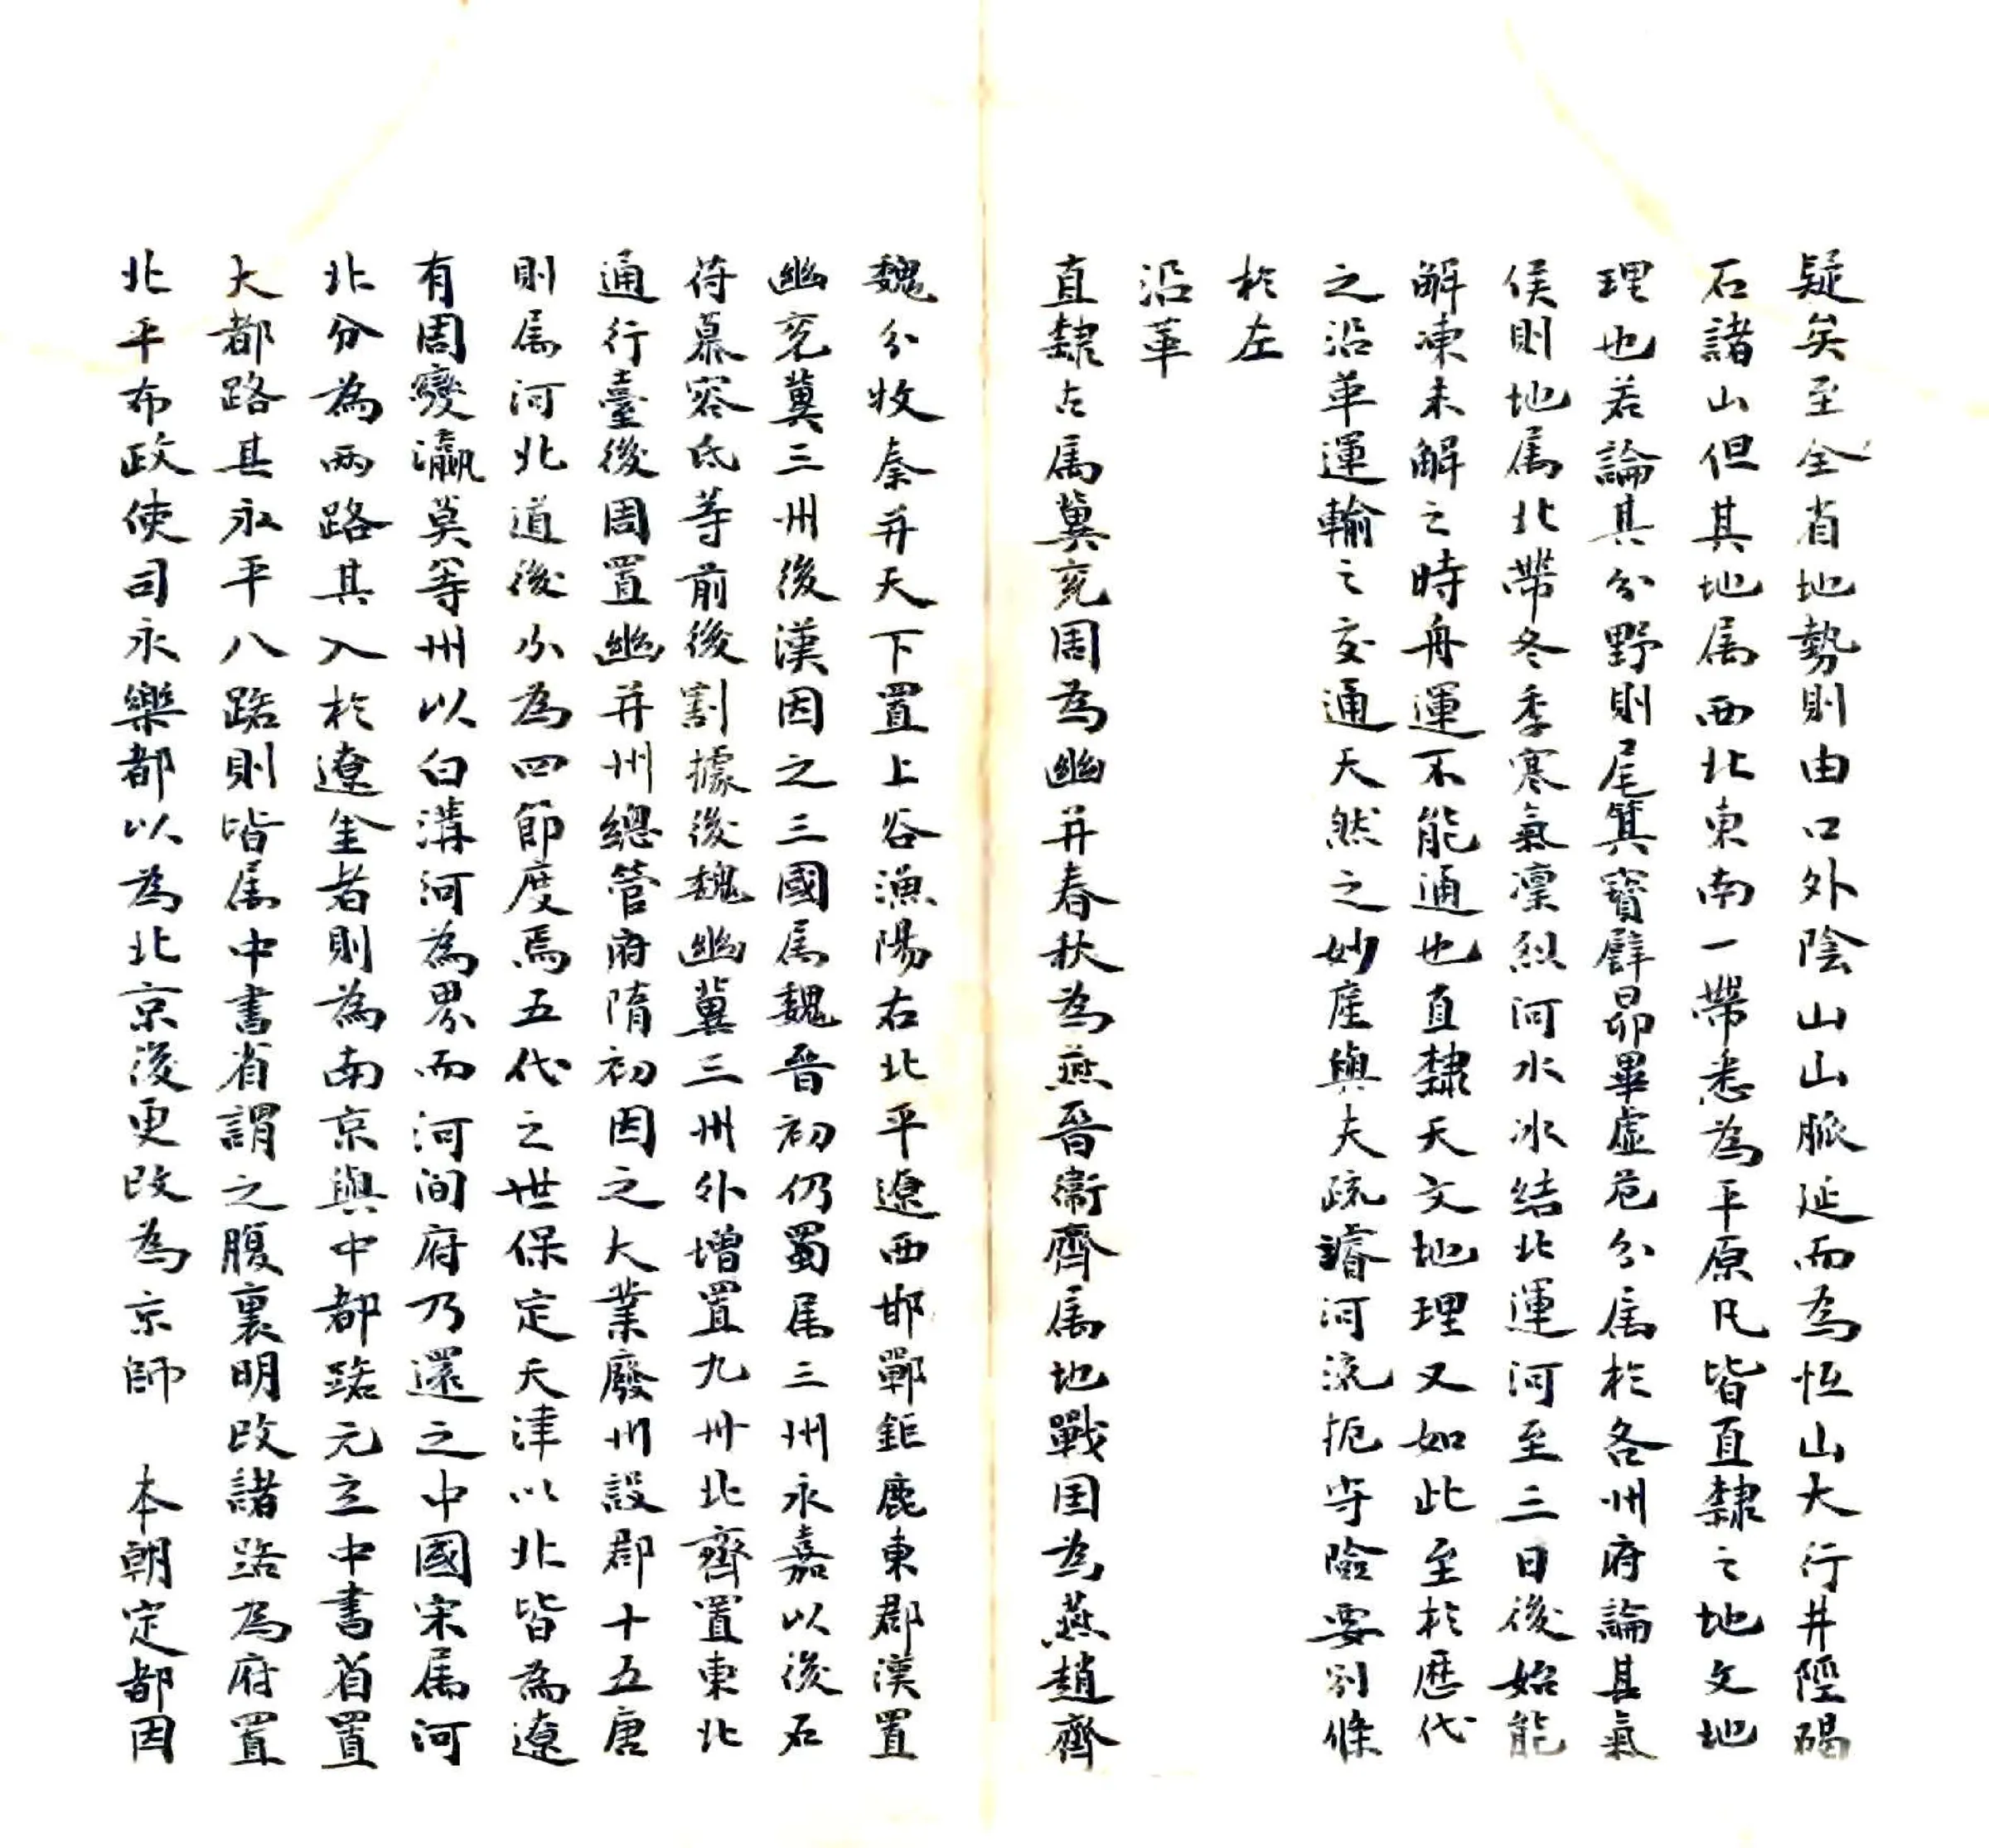 疑矣至全省地勢則由口外陰山山脈延而為恒山大行井陘碣
石諸山但其地属西北東南一帶悉為平原凡皆直隸之地文地
理也若論其分野則尾箕室壁昴畢虛危分属於各州府論其氣
侯則地属北帶冬季寒氣凜烈河水冰結北運河至三日後始能
解凍未解之時舟運不能通也直隸天文地理又如此至於歷代
之沿革運輸之交通天然之妙産與夫疏濬河流扼守險要別條
於左
沿革
直隸古属冀兖周為幽并春秋為燕晉衞齊属地戰国為燕趙齊
魏分收秦并天下置上谷漁陽右北平遼西邯鄲鉅鹿東郡漢置
幽兖冀三州後漢因之三國属魏晉初仍蜀属三州永嘉以後石
苻慕容氐等前後割據後魏幽冀三州外增置九州北齊置東北
通行臺後周置幽并州總管府隋初因之大業廢州設郡十五唐
則属河北道後分為四節度焉五代之世保定天津以北皆為遼
有周變瀛莫等州以白溝河為界而河间府乃還之中國宋属河
北分為两路其入於遼金者則為南京與中都路元立中書省置
大都路其永平八路則皆属中書省謂之腹裏明改諸路為府置
北平布政使司永樂都以為北京後更改為京師　本朝定都因